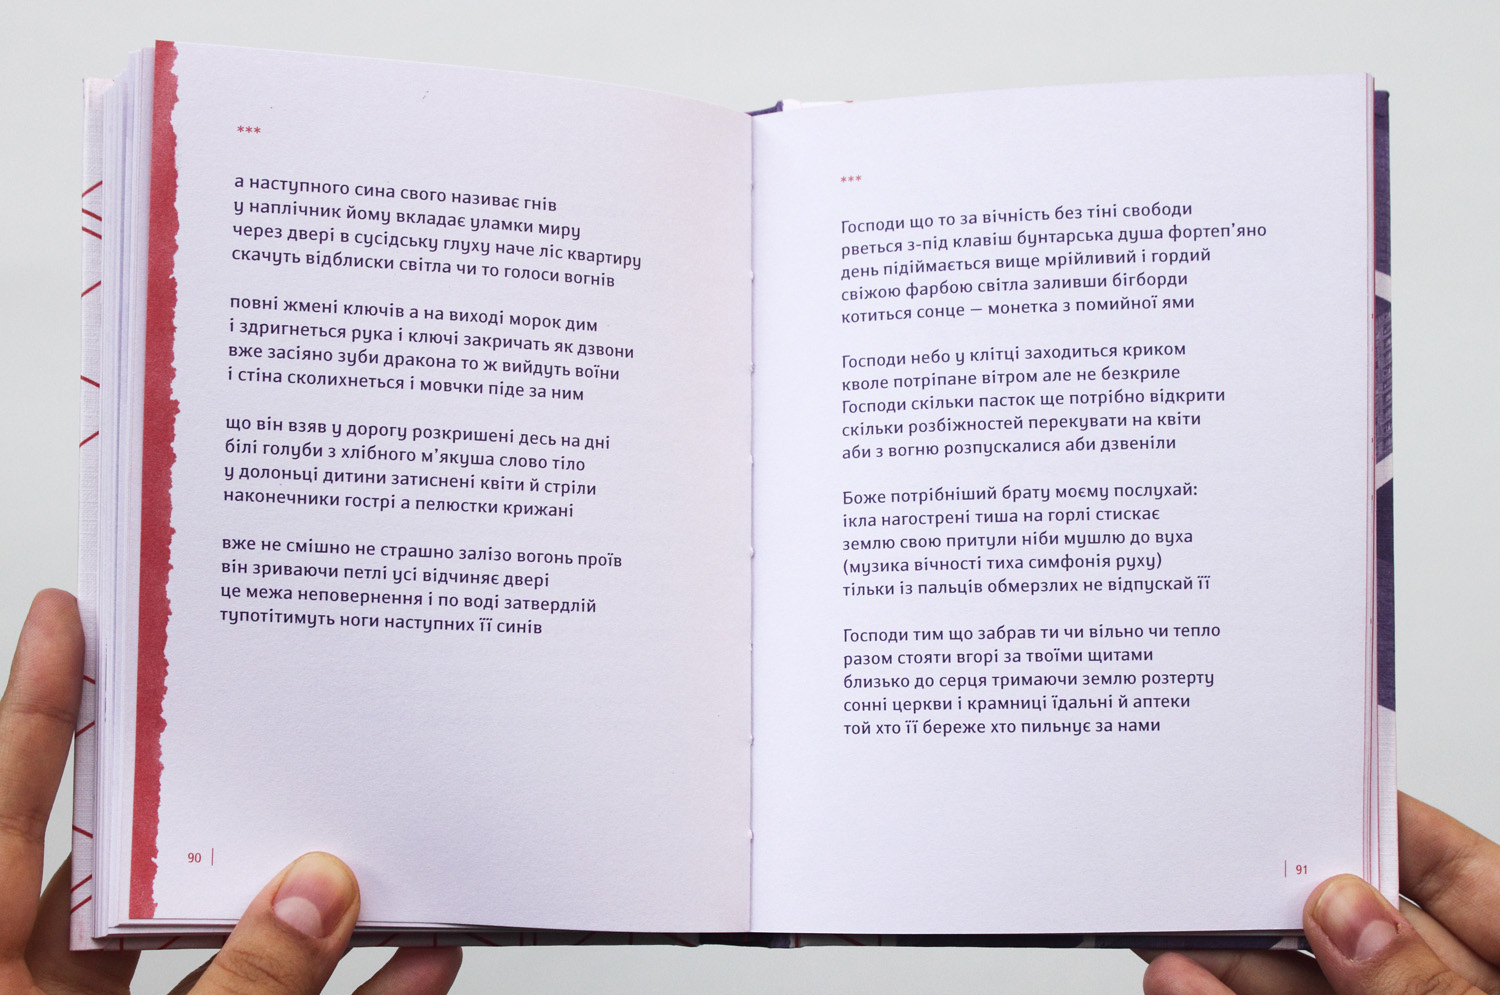 ***
а наступного сина свого називає гнів
у наплічник йому вкладає уламки миру
через двері в сусідську глуху наче ліс квартиру
скачуть відблиски світла чи то голоси вогнів
повні жмені ключів а на виході морок дим
і здригнеться рука і ключі закричать як дзвони
вже засіяно зуби дракона то ж вийдуть воїни
і стіна сколихнеться і мовчки піде за ним
що він взяв у дорогу розкришені десь на дні
білі голуби з хлібного м’якуша слово тіло
у долоньці дитини затиснені квіти й стріли
наконечники гострі а пелюстки крижані
вже не смішно не страшно залізо вогонь проїв
він зриваючи петлі усі відчиняє двері
це межа неповернення і по воді затвердлій
тупотітимуть ноги наступних її синів
90
***
Господи що то за вічність без тіні свободи
рветься з-під клавіш бунтарська душа фортеп’яно
день підіймається вище мрійливий і гордий
свіжою фарбою світла заливши бігборди
котиться сонце — монетка з помийної ями
Господи небо у клітці заходиться криком
кволе потріпане вітром але не безкриле
Господи скільки пасток ще потрібно відкрити
скільки розбіжностей перекувати на квіти
аби з вогню розпускалися аби дзвеніли
Боже потрібніший брату моєму послухай:
ікла нагострені тиша на горлі стискає
землю свою притули ніби мушлю до вуха
(музика вічності тиха симфонія руху)
тільки із пальців обмерзлих не відпускай її
Господи тим що забрав ти чи вільно чи тепло
разом стояти вгорі за твоїми щитами
близько до серця тримаючи землю розтерту
сонні церкви і крамниці їдальні й аптеки
той хто її береже хто пильнує за нами
91